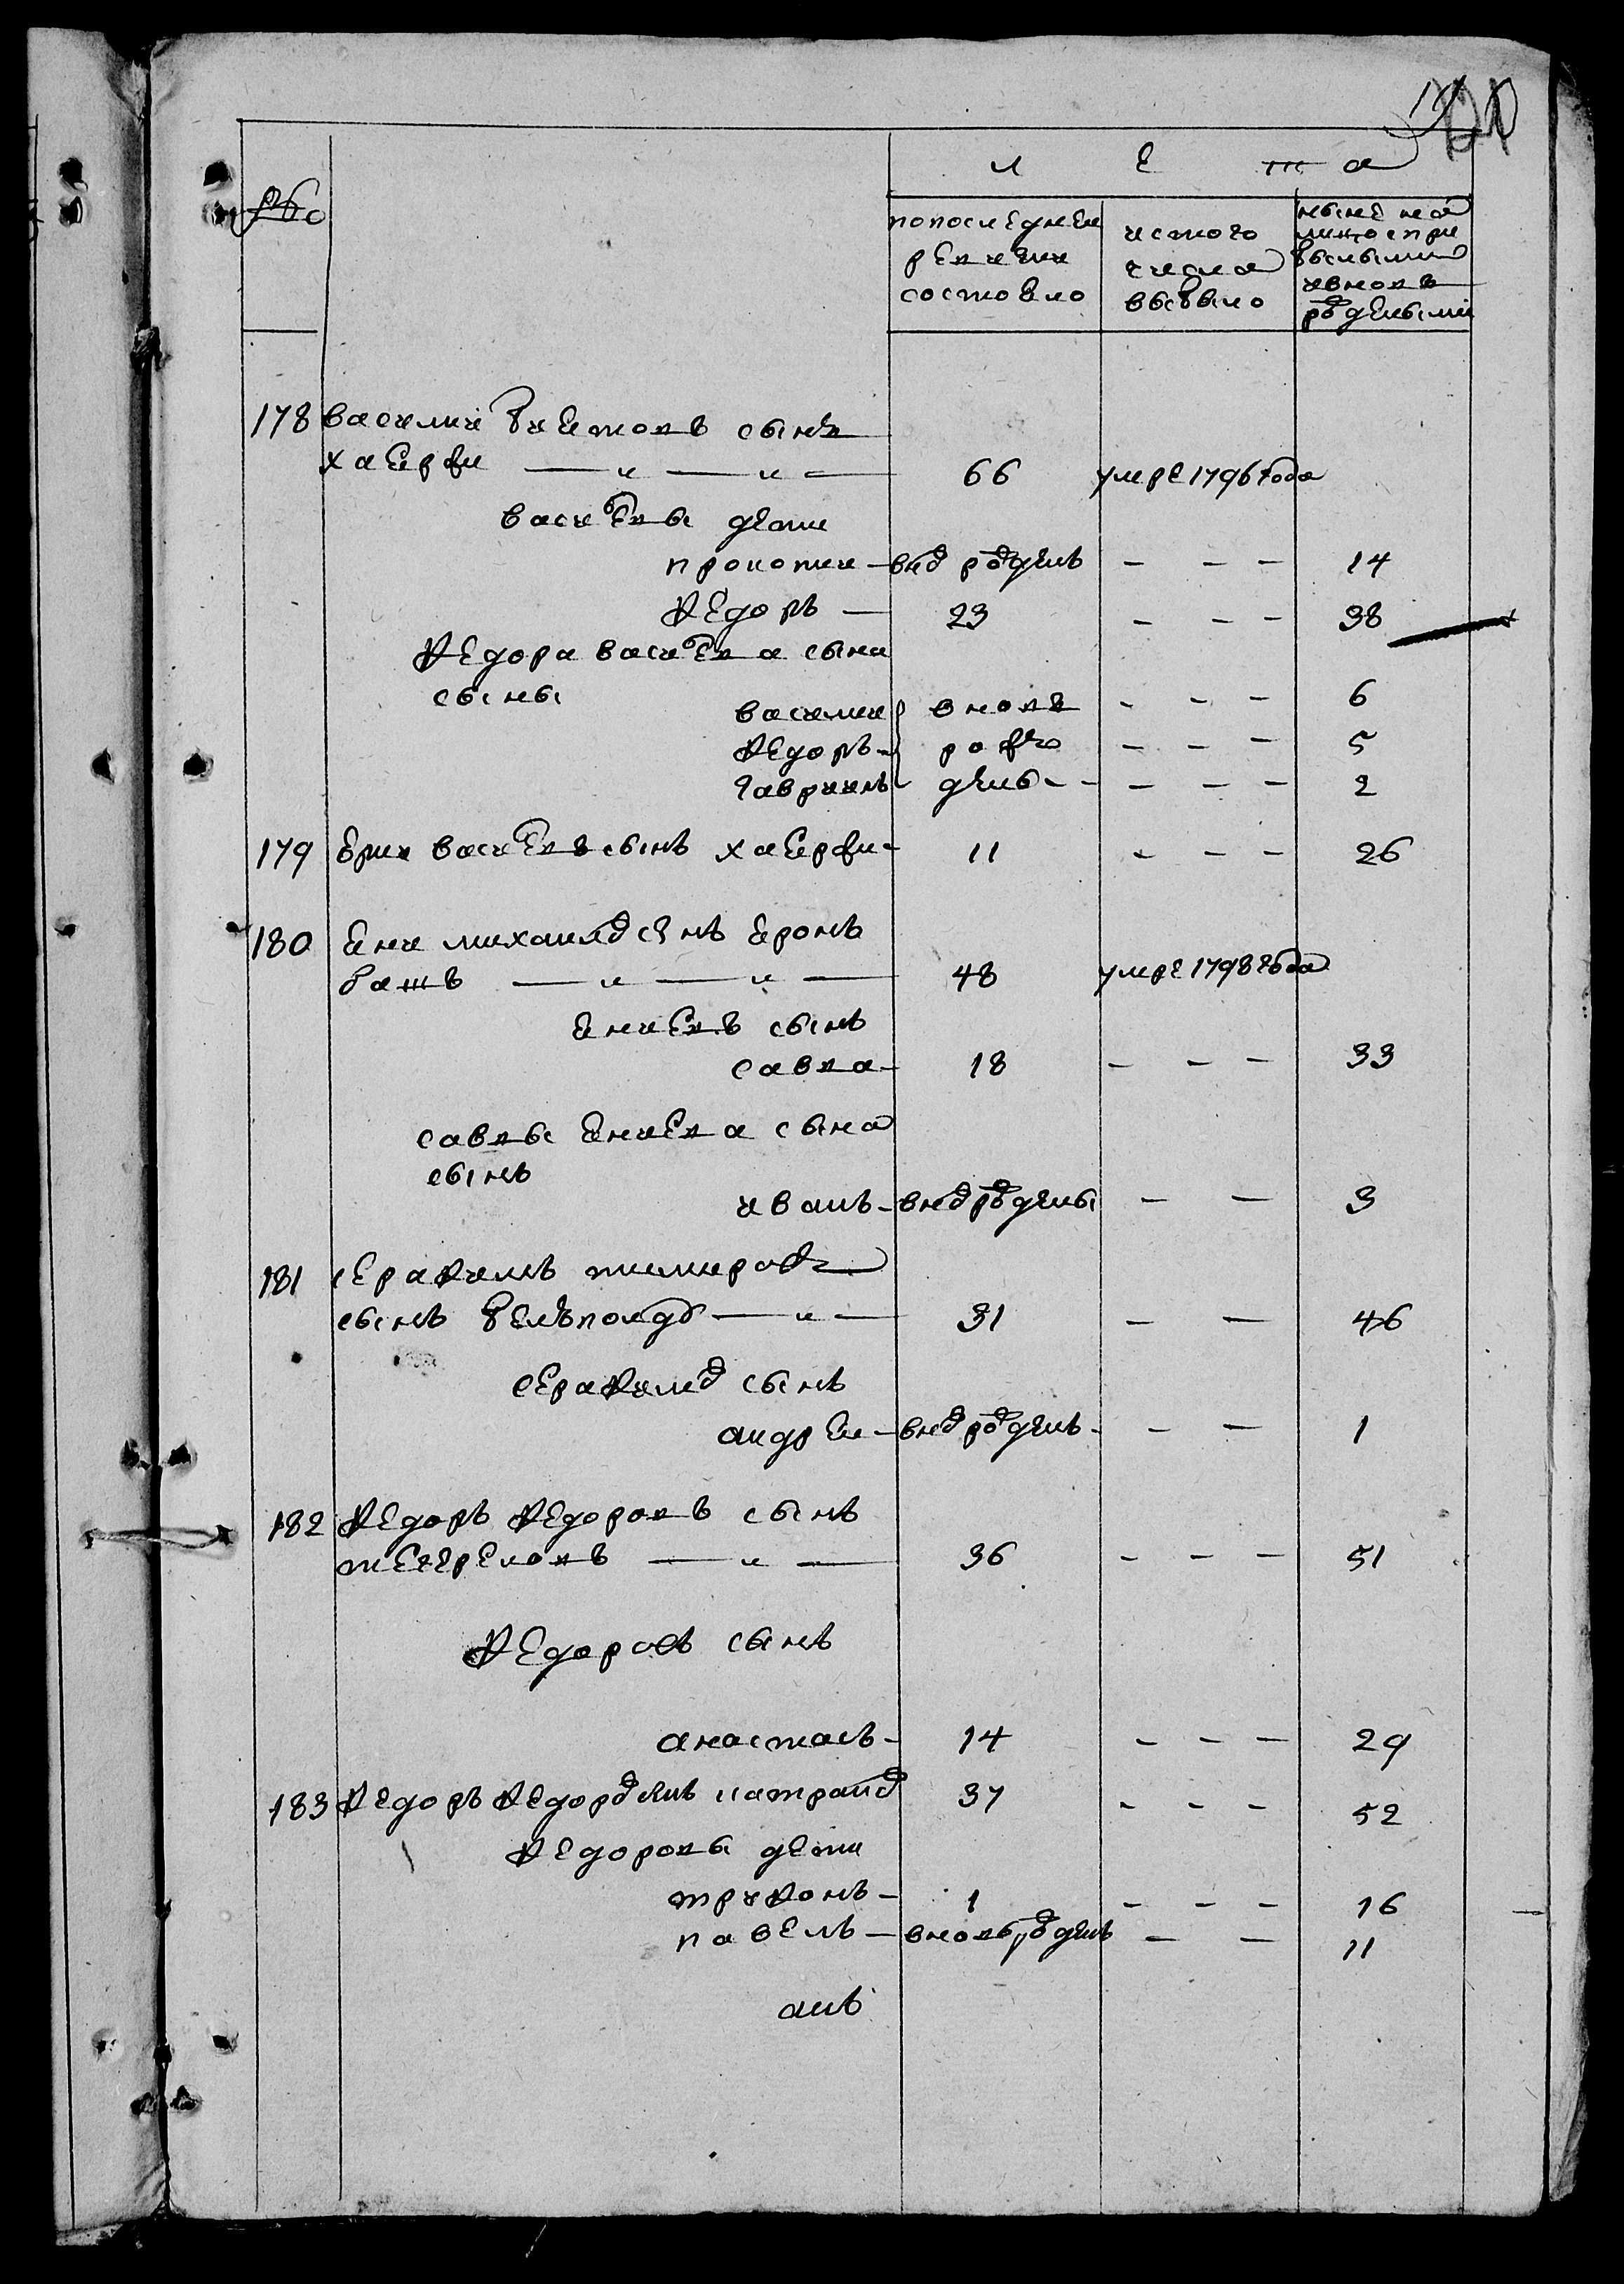 лета
№
попоследнеи
ревизии
состояло
истого
числа
выбыло
ныне на
лицо спри
былыми
ивновь
рождеными
178 василий сынъ
хаерфи — „ — „ — 66 умре 1796 года
васильевы дети
прокопии — внов рожденъ - - - 14
федоръ — 23 - - - 38
федора васильева сына
сыны
василии вновь - - - 6
федоръ - рож - - - 5
гавриилъ дены - - - - 2
179 васильевъ сынъ хаерфи - 11 - - - 26
180 ени михаилов сынъ
— „ — „ — 48 умре 1798 года
ениевъ сынъ
савва - 18 - - - 33
саввы ениева сына
сынъ
иванъ - внов рождены - - 3
181 серафимъ
сынъ — „ — 31 - - 46
серафимов сынъ
андреи - внов рожденъ - - - 1
182 федоръ федоровъ сынъ
— „ — 36 - - - 51
федоровъ сынъ
анастасъ - 14 - - - 29
183 федоръ федоров сынъ 37 - - - 52
федоровы дети
трифонъ - 1 - - - 16
павелъ - вновь рожденъ - - 11
анъ